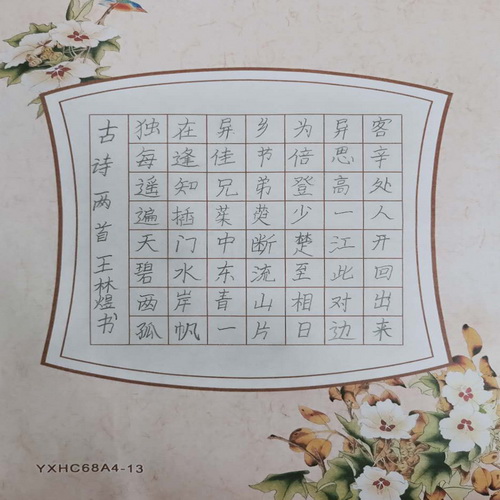 古诗两首王林煜书
独在异乡为异客
每逢佳节倍思辛
遥知兄弟登高处
遍插茱萸少一人
天门中断楚江开
碧水东流至此回
两岸青山相对出
孤帆一片日边来
YXHC68A4-13